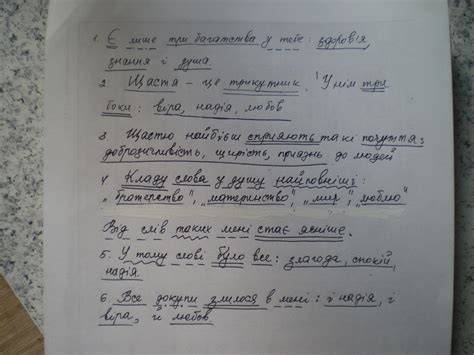 1. Є лише три багатства у тебе: здоров'я,
знання і душа
2. Щастя – це трикутник. У нім три
боки: віра, надія, любов.
3. Щастю найбільш сприяють такі почуття:
доброзичливість, щирість, приязнь до людей
4. Кладу слова у душу найповніші:
„братерство", „материнство", „мир", „люблю"
Від слів таких мені стає ясніше.
5. У тому слові було все: злагода, спокій,
надія.
6. Все докупи злилося в мені: і надія, і
віра, й любов.